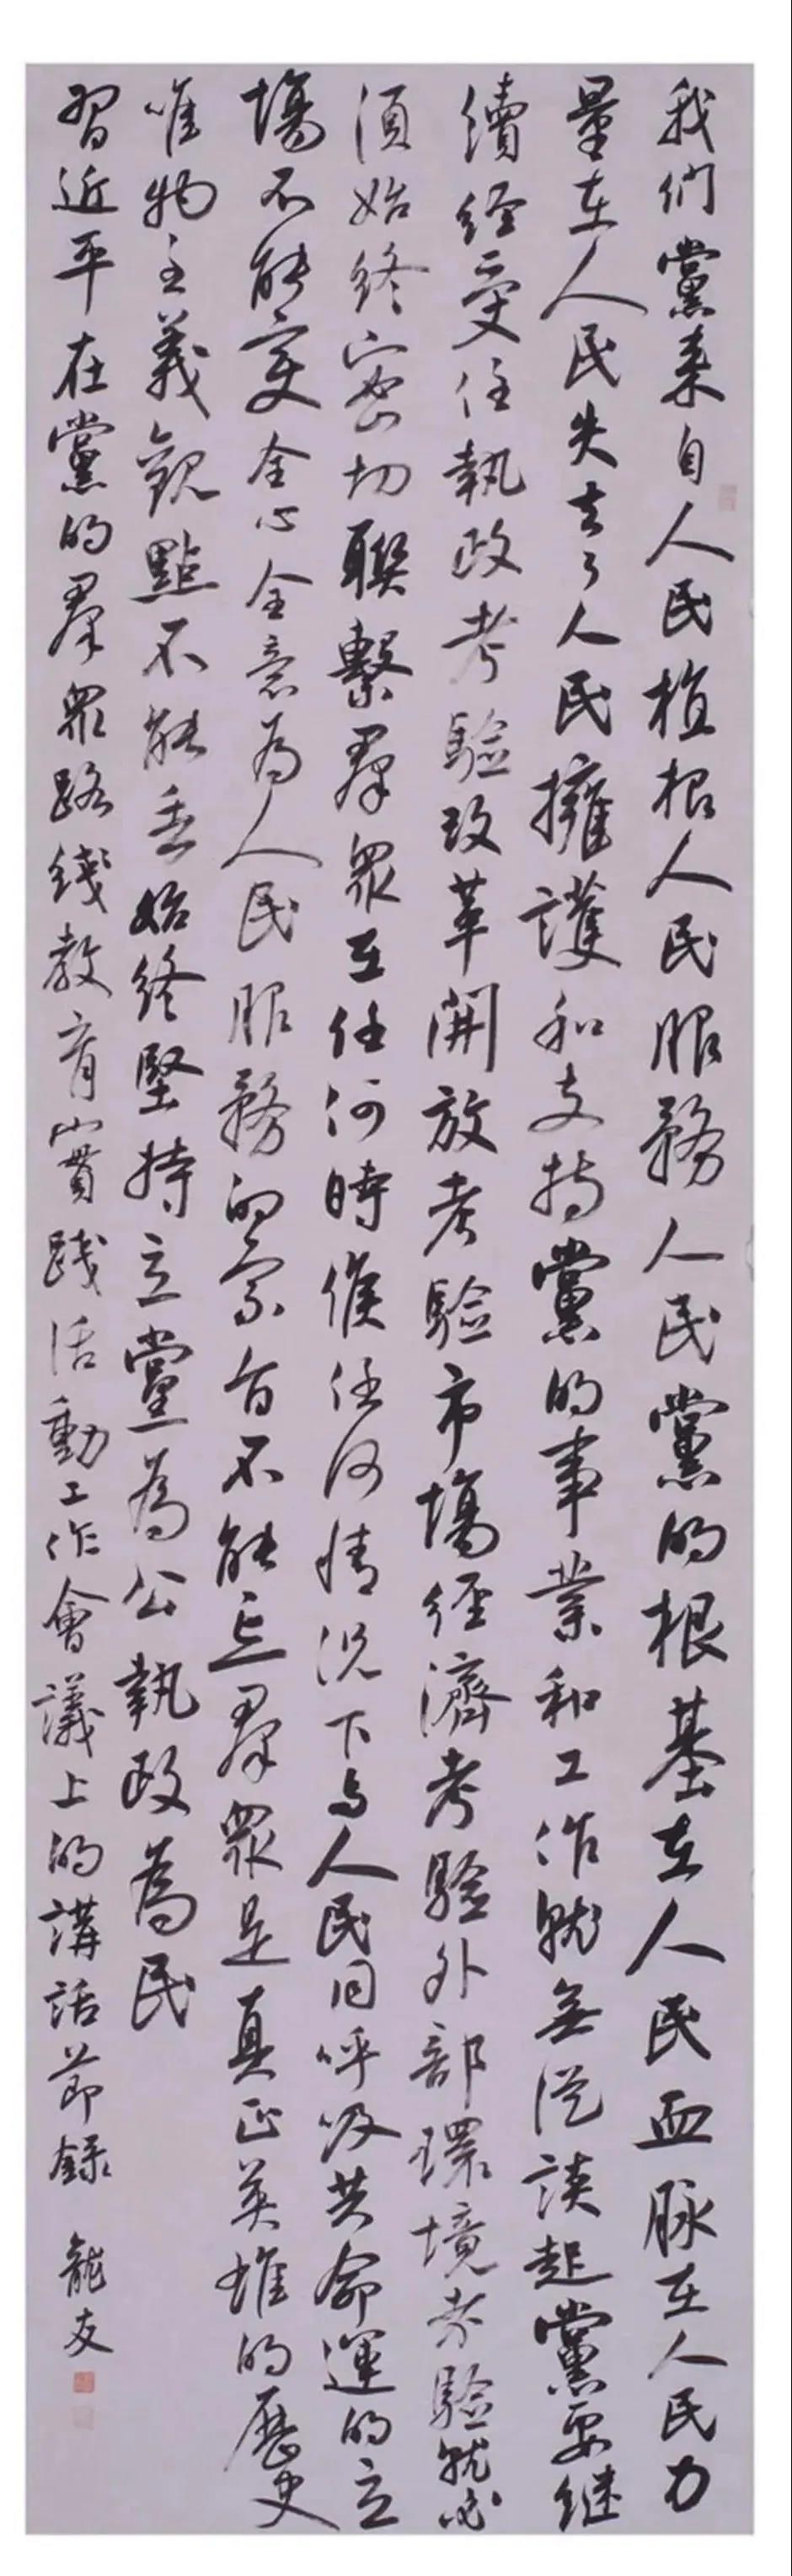 我们黨来自人民植根人民服務人民黨的根基在人民血脉在人民力
量在人民失去了人民擁護和支持黨的事業和工作就無從談起黨要继
續经受住執政考驗改革開放考驗市場经濟考驗外部環境考驗就必
須始终密切聯繫羣眾在任何時候任何情况下与人民同呼吸共命運的立
場不能变全心全意为人民服務的宗旨不能忘羣眾是真正英雄的歷史
唯物主義觀點不能丢始终堅持立黨為公執政為民
習近平在黨的羣眾路綫教育實践活動工作會議上的講話節録 龍友